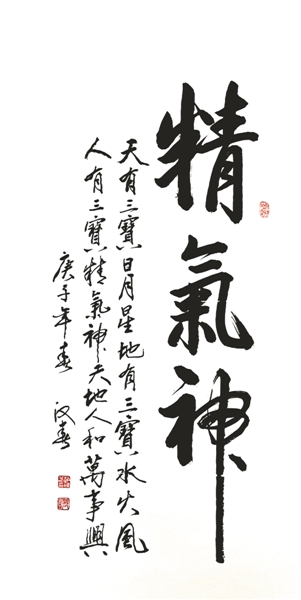 精氣神
天有三寶日月星地有三寶水火風
人有三寶精氣神天地人和萬事興
庚子年春 汉春